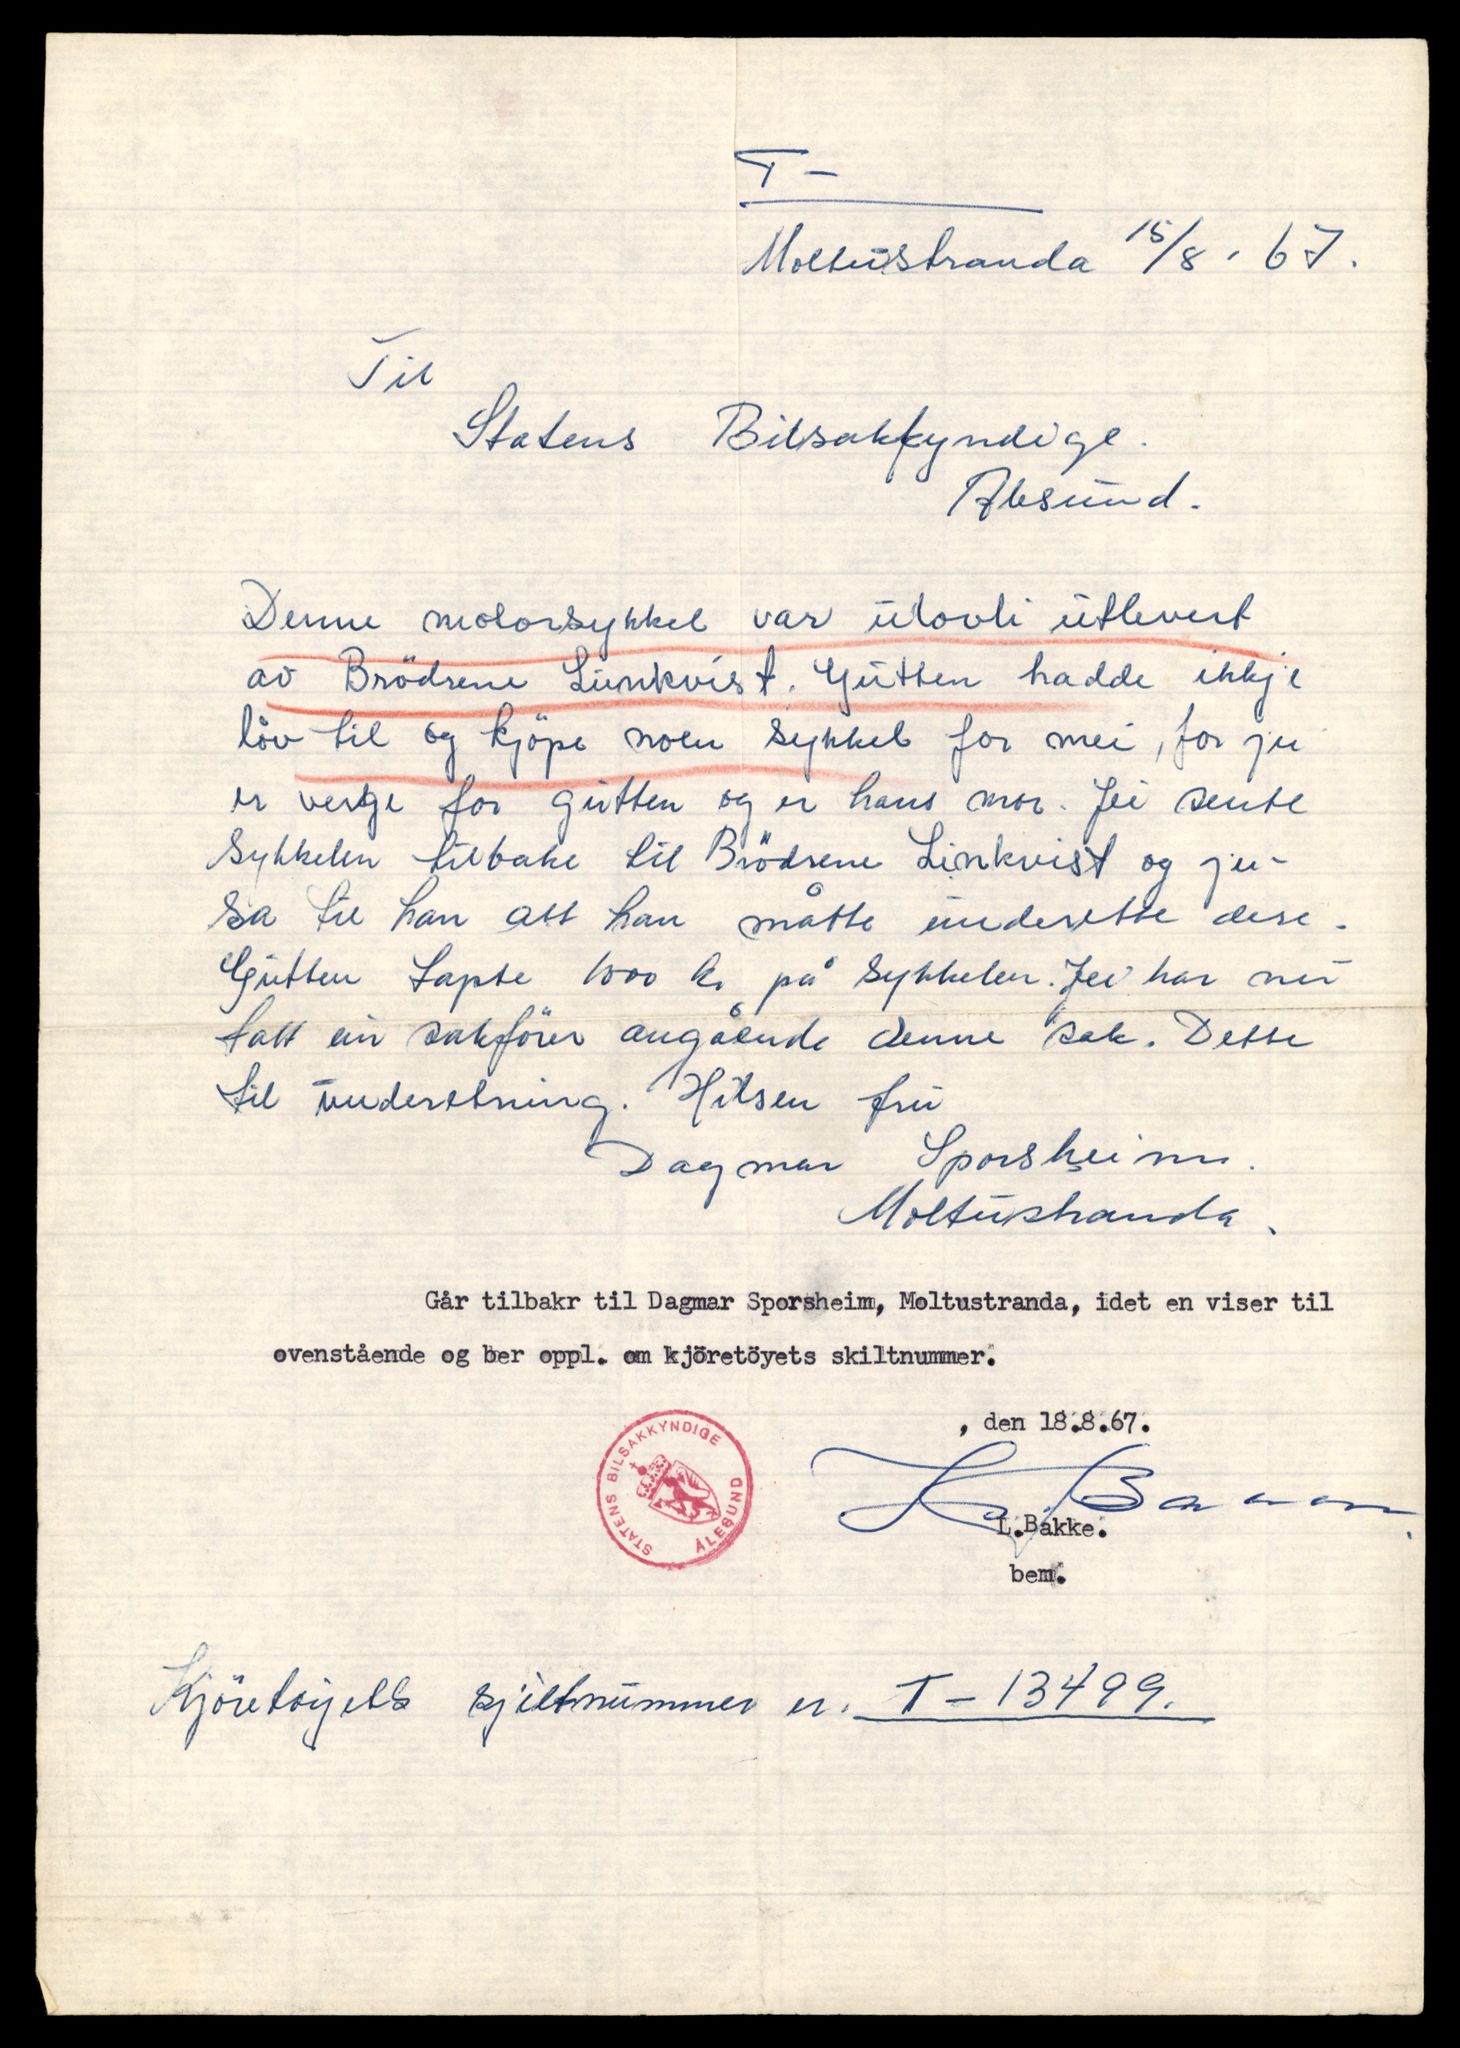 T-
Moltustranda 15/8. 67.
Til
Statens Bilsakkyndige.
Ålesund.
Denne motorsykkel var ulovli utlevert
av Brödrene Linkvist. Gutten hadde ikkje
lov til og kjöpe noen sykkel for mei, for jei
er verge for gutten og er hans mor. Jei sente
sykkelen tilbake til Brödrene Linkvist og jei
sa til han att han måtte underette dere.
Gutten tapte 1000 kr på sykkelen. Jei har nu
tatt ein sakförer angående denne sak. Dette
til underetning. Hilsen fru
Dagmar Sporsheim.
Moltustranda.
Går tilbakr til Dagmar Sporsheim, Moltustranda, idet en viser til
ovenstående og ber oppl. om kjöretöyets skiltnummer.
, den 18.8.67.
STATENS BILSAKKYNDIGE
ÅLESUND
L.Bakke.
bem.
Kjöretöyets sjiltnummer er. T-13499.